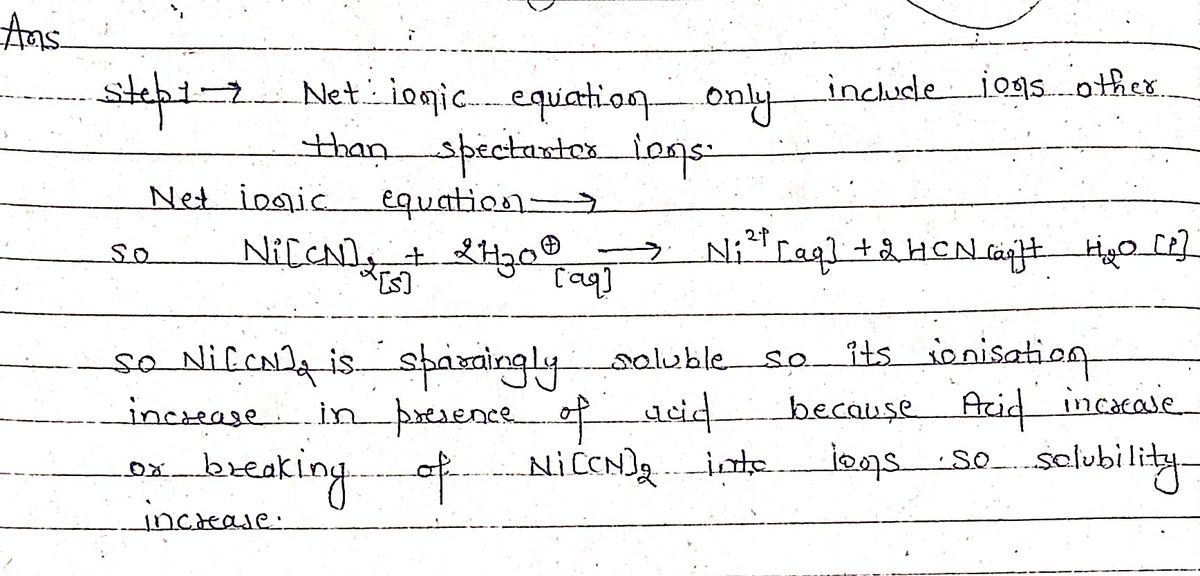 Ans
step1 → Net ionic equation only include ions other
than spectartor ions.
Net ionic equation →
so Ni[CN]₂[s] + 2H₃O⊕[aq] → Ni²⁺[aq] + 2HCN(aq)+ H₂O[l]
so Ni[CN]₂ is sparaingly soluble so its ionisation
increase in presence of acid because Acid increase
or breaking of Ni[CN]₂ into ions so solubility
increase.